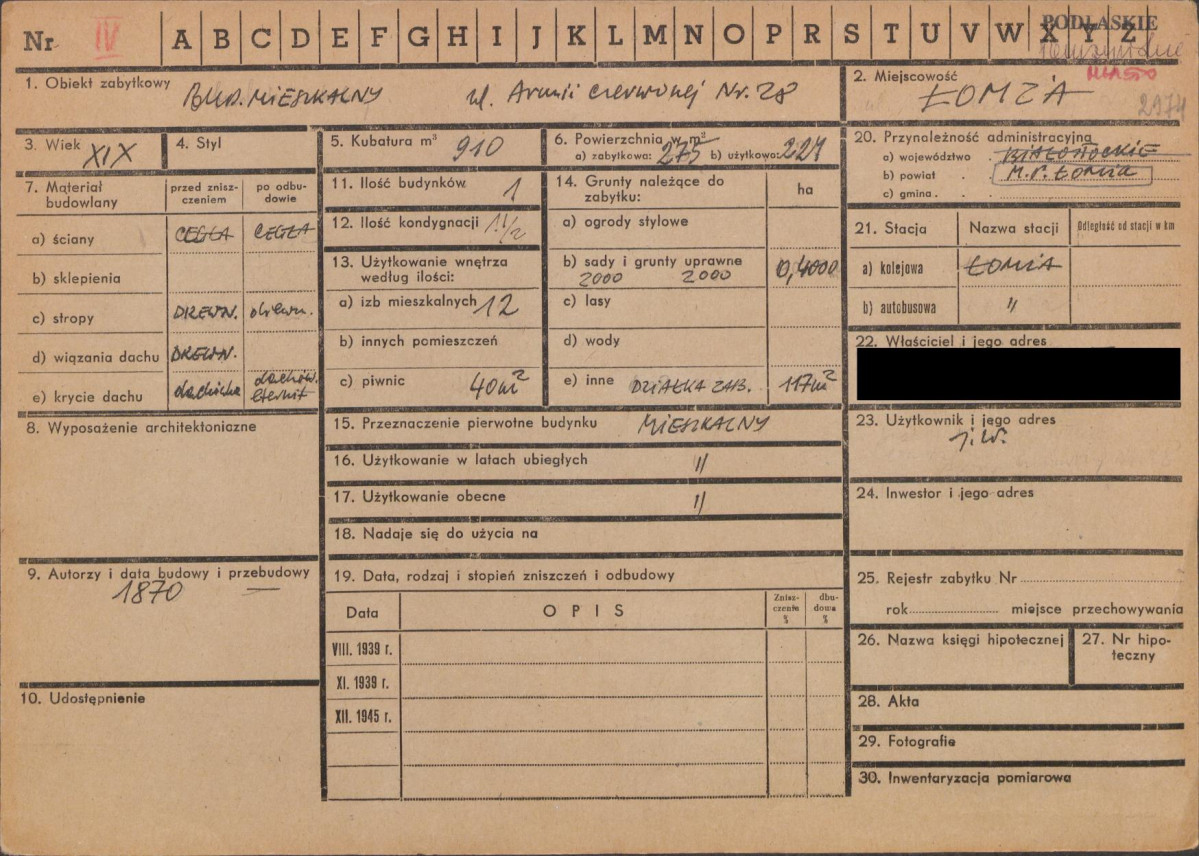 Nr IV A B C D E F G H I J K L M N O P R S T U V W X Y Z PODLASKIE
MIASTO
1. Obiekt zabytkowy BUD. MIESZKALNY ul. Armii Czerwonej Nr. 28
2. Miejscowość ŁOMŻA
2974
3. Wiek XIX
4. Styl
5. Kubatura m³ 910
6. Powierzchnia w m²
a) zabytkowa: 275 b) użytkowa: 227
7. Materiał budowlany
przed zniszczeniem
po odbudowie
a) ściany CEGŁA CEGŁA
b) sklepienia
c) stropy DREWN. drewn.
d) wiązania dachu DREWN.
e) krycie dachu dachówka dachów. eternit
8. Wyposażenie architektoniczne
9. Autorzy i data budowy i przebudowy
1870 —
10. Udostępnienie
11. Ilość budynków 1
12. Ilość kondygnacji 1 1/2
13. Użytkowanie wnętrza według ilości:
a) izb mieszkalnych 12
b) innych pomieszczeń
c) piwnic 40m²
14. Grunty należące do zabytku:
ha
a) ogrody stylowe
b) sady i grunty uprawne 0,4000
2000 2000
c) lasy
d) wody
e) inne DZIAŁKA ZAB. 117m²
15. Przeznaczenie pierwotne budynku MIESZKALNY
16. Użytkowanie w latach ubiegłych "
17. Użytkowanie obecne "
18. Nadaje się do użycia na
19. Data, rodzaj i stopień zniszczeń i odbudowy
Data OPIS Zniszczenie % dbudowa %
VIII. 1939 r.
XI. 1939 r.
XII. 1945 r.
20. Przynależność administracyjna
a) województwo BIAŁOSTOCKIE
b) powiat M.P. ŁOMŻA
c) gmina
21. Stacja Nazwa stacji Odległość od stacji w km
a) kolejowa ŁOMŻA
b) autobusowa "
22. Właściciel i jego adres
23. Użytkownik i jego adres
j.w.
24. Inwestor i jego adres
25. Rejestr zabytku Nr
rok miejsce przechowywania
26. Nazwa księgi hipotecznej
27. Nr hipoteczny
28. Akta
29. Fotografie
30. Inwentaryzacja pomiarowa